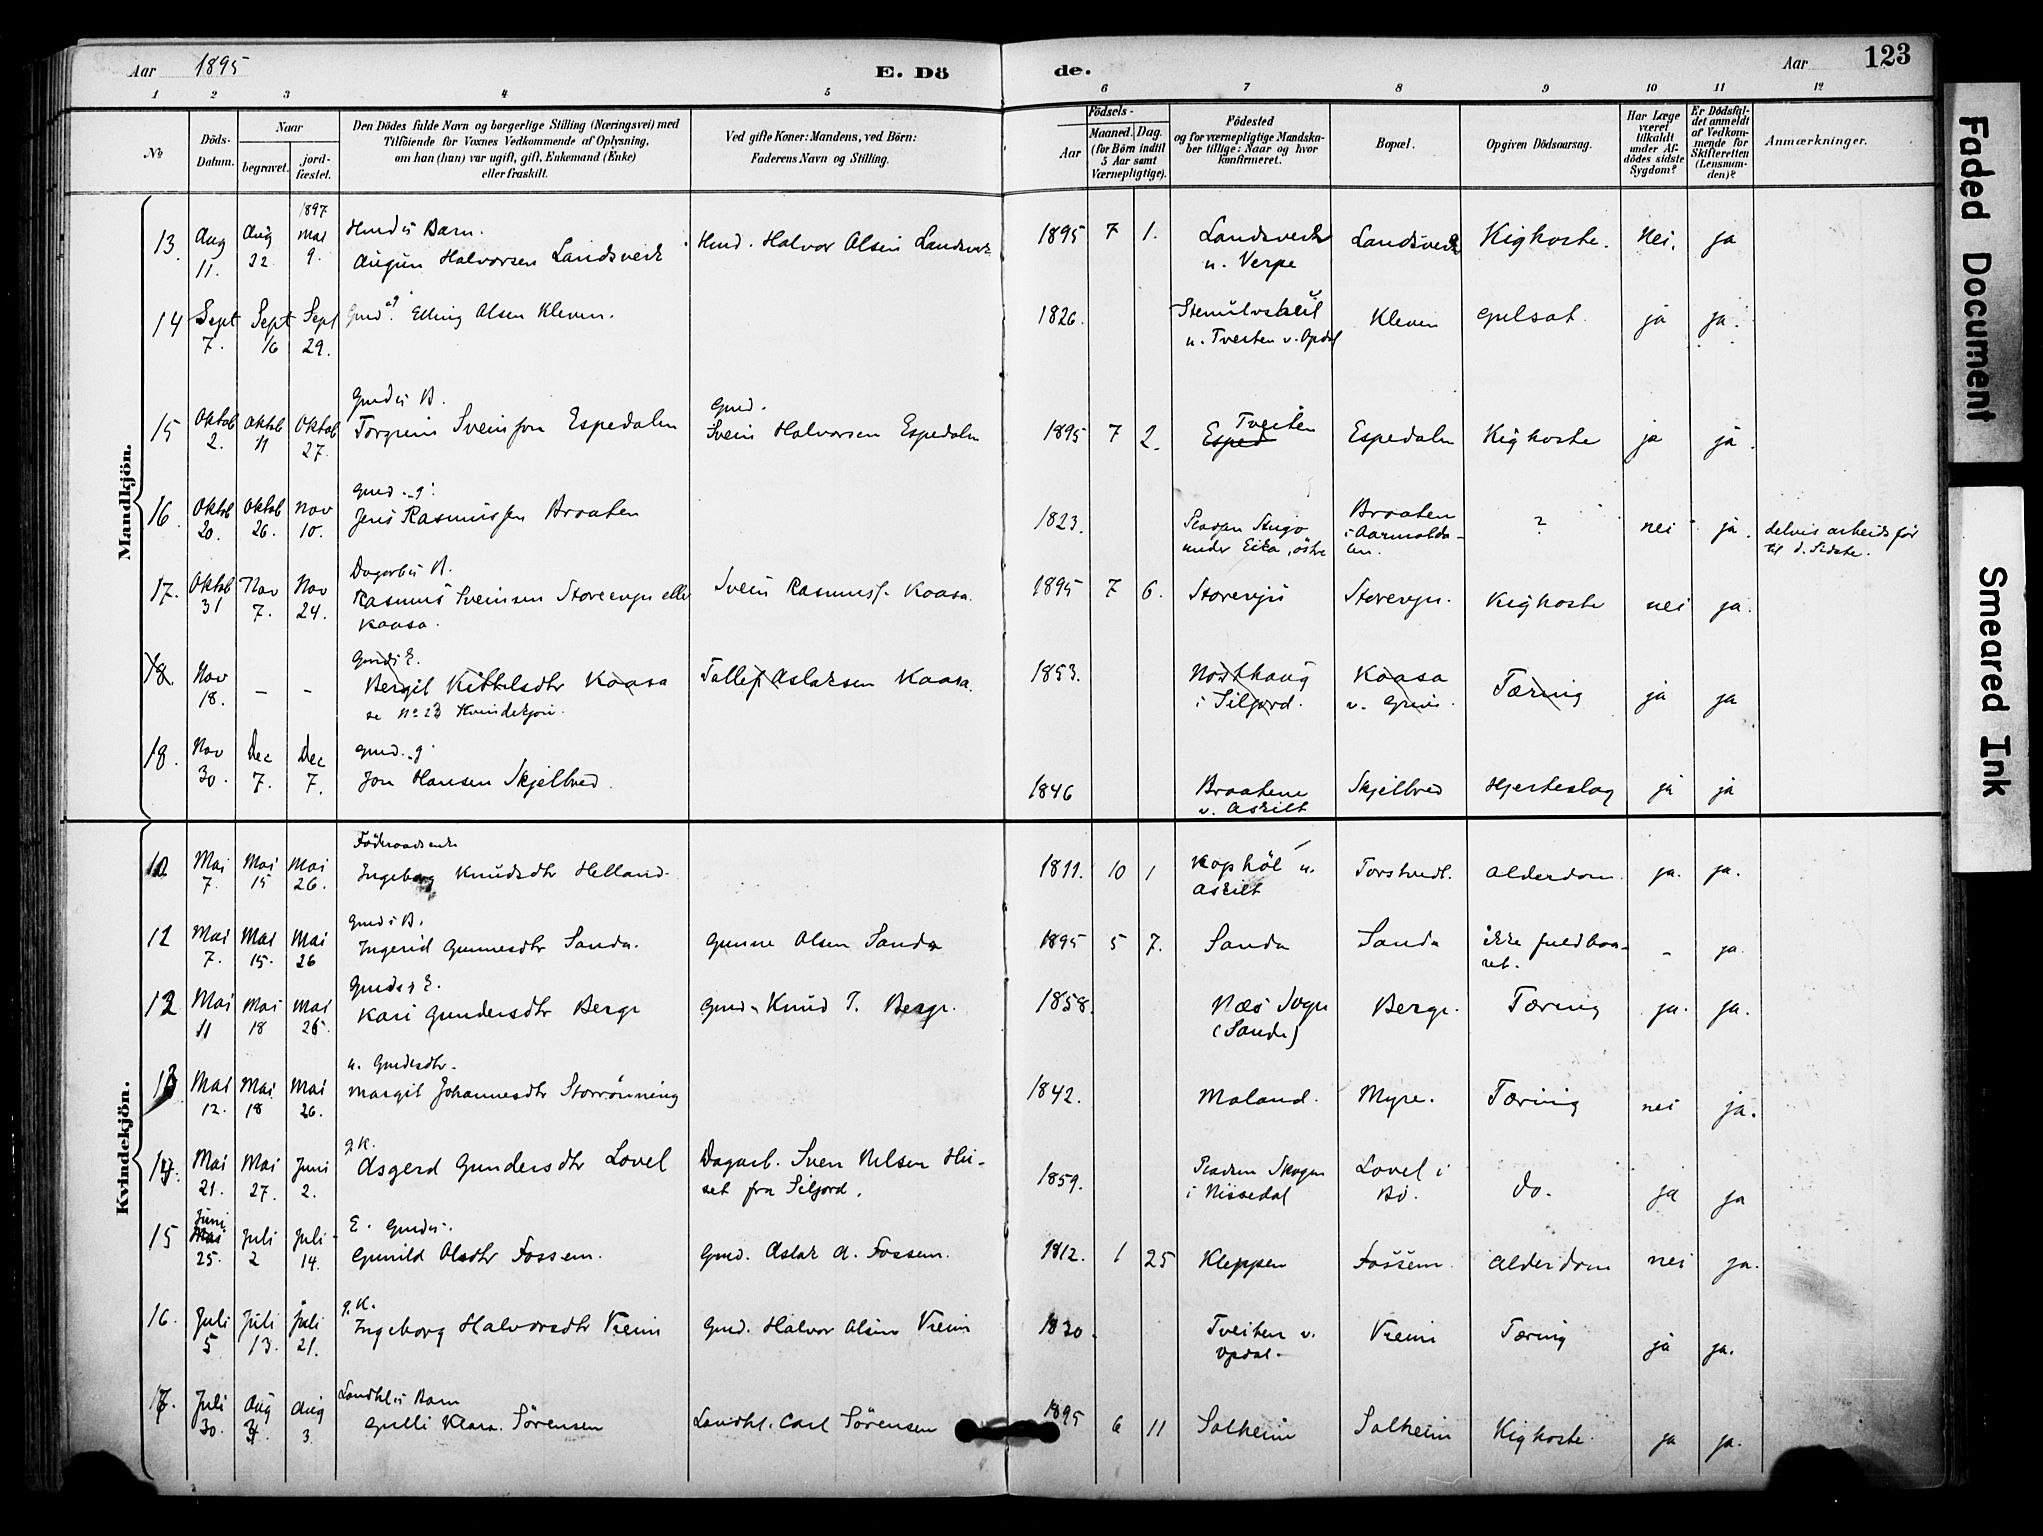 Aar 1895
E. Döde.
Aar 123
1 2 3 4 5 6 7 8 9 10 11 12
No
Döds-Datum.
Naar
begravet.
jord-fæstet.
Den Dödes fulde Navn og borgerlige Stilling (Næringsvei) med
Tilföiende for Voxnes Vedkommende af Oplysning,
om han (hun) var ugift, gift, Enkemand (Enke)
eller fraskilt.
Ved gifte Koner: Mandens, ved Börn:
Faderens Navn og Stilling.
Födsels-
Aar
Maaned. Dag.
(for Börn indtil
5 Aar samt
Værnepligtige).
Födested
og for værnepligtige Mandska-
ber tillige: Naar og hvor
konfirmeret.
Bopæl.
Opgiven Dödsaarsag.
Har Læge
været
tilkaldt
under Af-
dödes sidste
Sygdom?
Er Dödsfal-
det anmeldt
af Vedkom-
mende for
Skifteretten
(Lensman-
den)?
Anmærkninger.
Mandkjön.
13. Aug 11. Aug 22. 1897 Mai 9. Hmd's Barn. Augun Halvorsen Landsverk Hmd. Halvor Olsen Landsverk 1895 7 1. Landsverk u. Verpe Landsverk Kighoste. Nei. ja
14 Sept 7. Sept 16 Sept 29. Gmd. g. Elling Olsen Kleven. 1826. u. Tveiten v. Opdal Kleven Gulsot. ja ja.
15 Oktob 2. Oktob 11 Oktob 27. Gmd's B. Torgrim Sveinson Espedalen Gmd. Svein Halvorsen Espedalen 1895 7 2. Esped Tveiten Espedalen Kighoste ja ja.
16. Oktob 20. Oktob 26. Nov 10. Gmd. g. Jens Rasmussen Braaten 1823. under Eika, östre Braaten i ? nei ja. delvis arbeidsför til d. Sidste.
17. Oktob 31 Nov 7. Nov 24. Dagarb's B. Rasmus Sveinsen Storeengen eller Kaasa. Svein Rasmuss. Kaasa. 1895 7 6. Kighoste nei ja.
18 Nov 18. – – Gmd's E. Bergit Kittelsdtr Kaasa se No 23 Kvindekjön. Tallef Aslaksen Kaasa. 1853. Nordhaug i Siljord. Kaasa Tæring ja ja
18. Nov 30. Dec 7. Dec 7. Gmd. g. Jon Hansen Skjelbred. 1846 Braatene v. Askilt Skjelbred Hjerteslag ja ja
Kvindekjön.
10 Mai 7. Mai 15 Mai 26. Föderaadsenke Ingeborg Knudsdtr Helland. 1811. 10 1 Kophöl u. Askilt Torstvedt. Alderdom. ja. ja.
12 Mai 7. Mai 15. Mai 26 Gmd's B. Ingerid Gunnesdtr Sanda. Gunne Olsen Sanda 1895 5 7. Sanda Sanda ikke fuldbaaret. – ja.
12 Mai 11 Mai 18 Mai 26. Gmd's E. Kari Gundersdtr Berge Gmd. Knud T. Berge. 1858. Næs Sogn (Sande) Berge. Tæring ja. ja.
13 Mai 12. Mai 18 Mai 26. u. Gmdsdtr. Margit Johannesdtr Storrönning 1842. Moland. Myre. Tæring nei ja.
14. Mai 21. Mai 27. Juni 2. g.K. Asgerd Gundersdtr Lovel Dagarb. Sven Nilsen Huset fra Siljord. 1859. Skogen i Nissedal Lovel i Bö. do. ja ja
15 Mai Juni 25. Juli 2 Juli 14. E. Gmds. Gunild Olsdtr Fossem. Gmd. Aslak A. Fossem. 1812. 1 25 Kleppen Fossem. Alderdom nei ja.
16. Juli 5 Juli 13. Juli 21. g.K. Ingeborg Halvorsdtr Vreim Gmd. Halvor Olsen Vreim 1830. Tveiten v. Opdal. Vreim Tæring ja ja.
17. Juli 30. Aug 3 Aug 3. Landhl's Barn Gulli Klara Sörensen Landhl. Carl Sörensen 1895 6 11 Solheim Solheim Kighoste. ja ja.
Faded Document
Smeared Ink